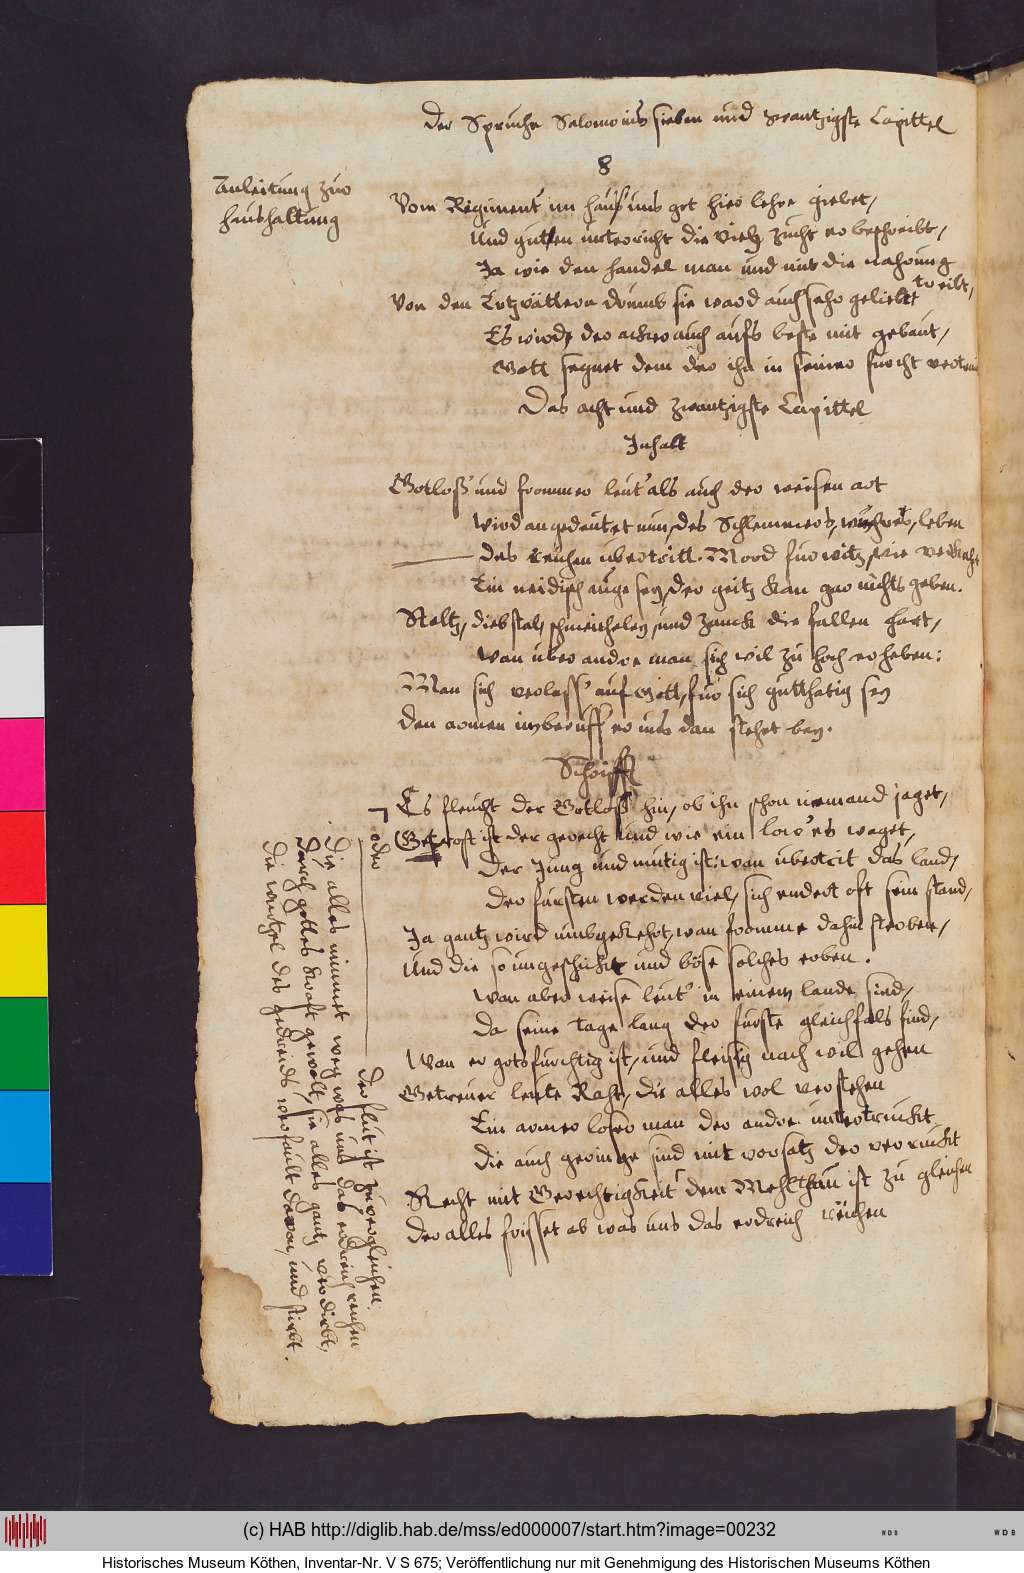 Der Spruche Salomonis sieben und zwantzigste Capittel
8
Anleitung zur
haushaltung
Vom Regiment im hauß uns got hier lehre giebet,
Und gutten unterricht die viehzucht er beschreibt,
Ja wie den handel man und mit die nahrung
treibt,
Von den Ertzvättern drumb sie ward auch sehr geliebt
Es wird der acker auch aufs beste mit gebaut,
Gott segnet dem der ihn in seiner furcht
Das acht und zwantzigste Capittel
Inhalt
Gotloß und frommer leut als auch der weisen art
wird angedeutet nun, des Schlemmers, leben
des reichen ubertritt. Mord furwitz, wie
Ein neidisch auge sey, der geitz kan gar nichts geben.
Stoltz, diebstal, schmeicheley, und zanck die fallen hart,
Wan uber andre man sich wil zu hoch erheben:
Man sich verlass auf Gott, fur sich gutthatig sey
den armen er uns dan stehet bey.
Schrifft
Es fleucht der Gotloß hin, ob ihn schon niemand jaget,
Getrost ist der gerecht und wie ein low' es waget,
Der Jung und mutig ist: wan ubertrit das land,
Der fursten werden viel, sich endert oft sein stand,
Ja gantz wird umbgekehrt, wan fromme dahin sterben,
Und die so ungeschickt und böse solches erben.
Wan aber weise leut' in einem lande sind,
Da seine tage lang der furste gleichfals find,
Wan er gotsfurchtig ist, und fleisig nach wil gehen
Getreuer leute Raht, die alles wol verstehen
Ein armer loser man der andre untertruckt
die auch geringe sind mit vorsatz der verruckt
Recht mit Gerechtigkeit dem Mehlthau ist zu gleichen
der alles frisset ab was uns das erdreich reichen
oder
der flut ist zuvergleichen.
die alles nimmet weg was uns das erdreich reichen
durch gottes kraft gewolt, sie alles gantz verdirbt,
die wurtzel des getreids verfault davon, und stirbt.
(c) HAB http://diglib.hab.de/mss/ed000007/start.htm?image=00232
WDB
WDB
Historisches Museum Köthen, Inventar-Nr. V S 675; Veröffentlichung nur mit Genehmigung des Historischen Museums Köthen